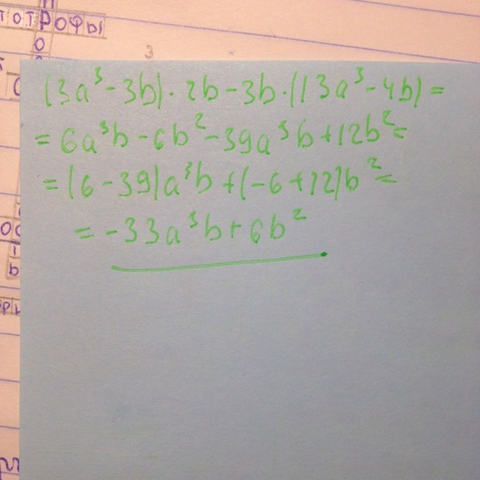 ТОТРОФЫ
О
3
(3a³-3b)·2b-3b·(13a³-4b)=
=6a³b-6b²-39a³b+12b²=
=(6-39)a³b+(-6+12)b²=
=-33a³b+6b²